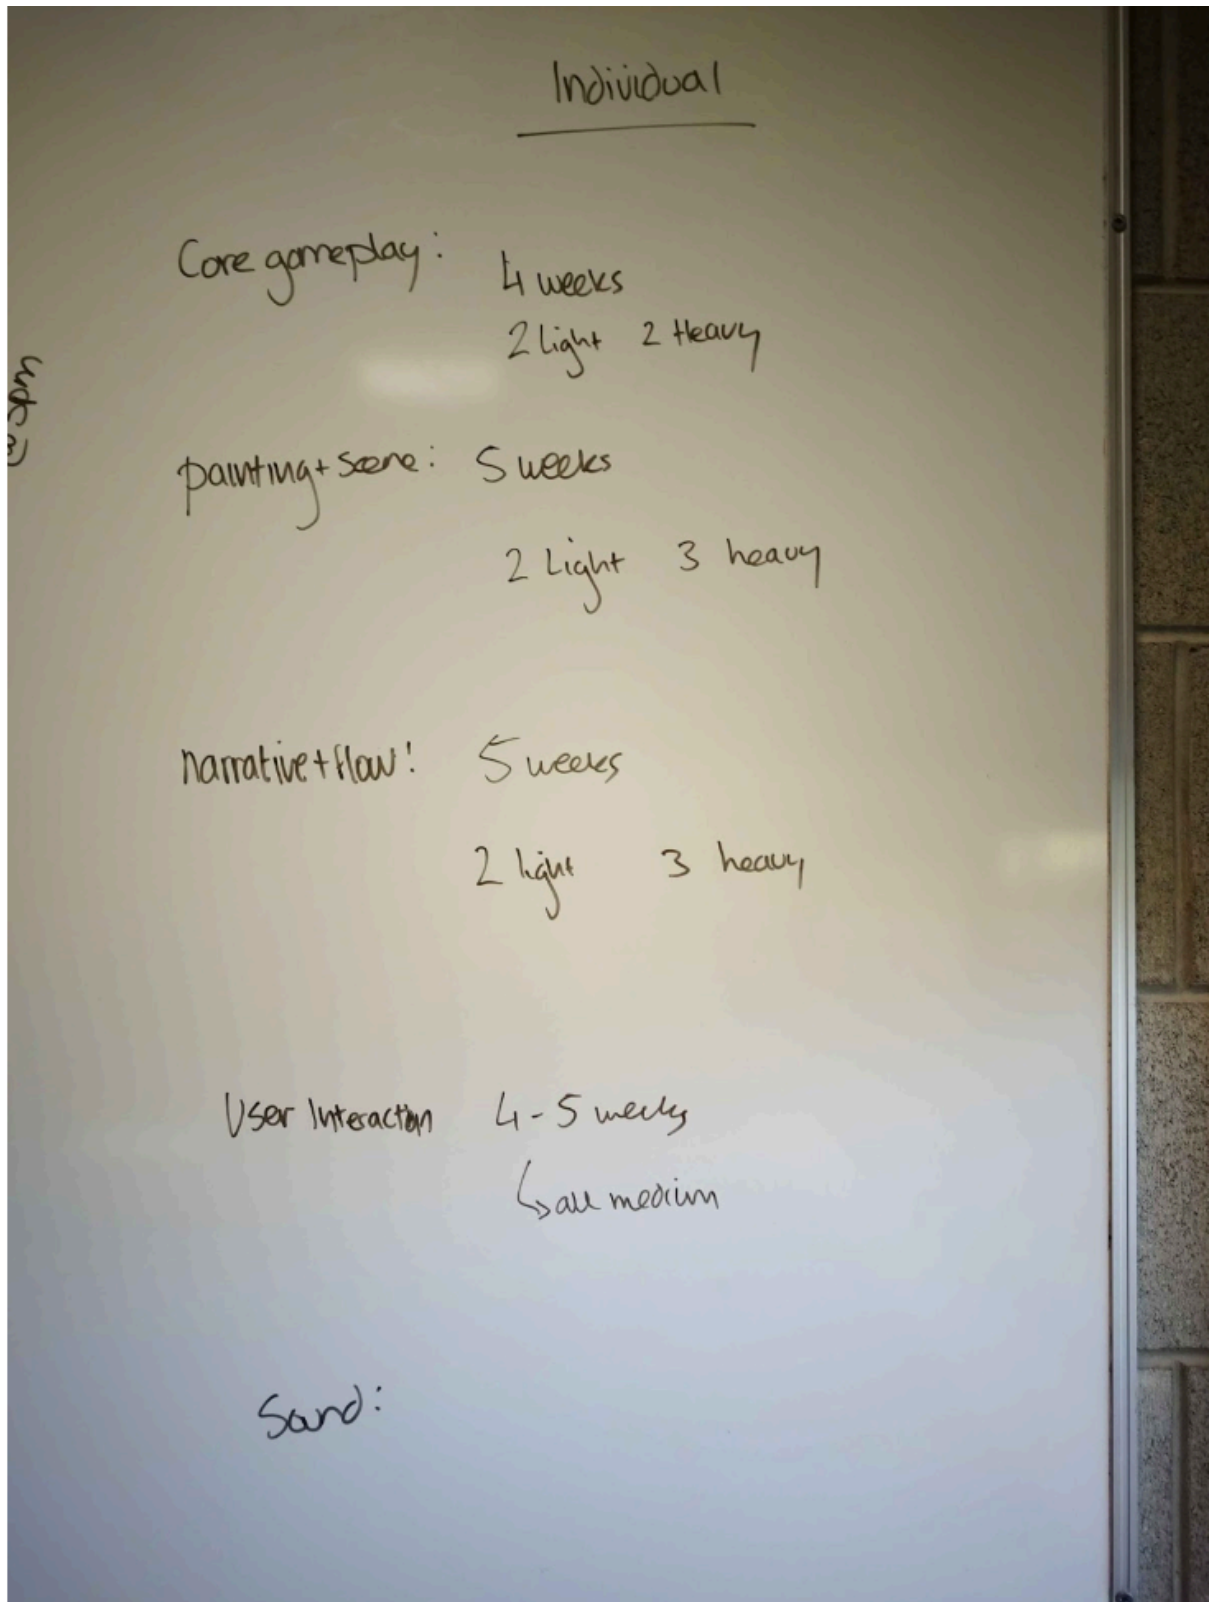 Individual
Core gameplay:
4 weeks
2 light 2 Heavy
@ 3pm
painting + scene: 5 weeks
2 Light 3 heavy
narrative + flow: 5 weeks
2 light 3 heavy
User Interaction 4 - 5 weeks
↳ all medium
Sound: